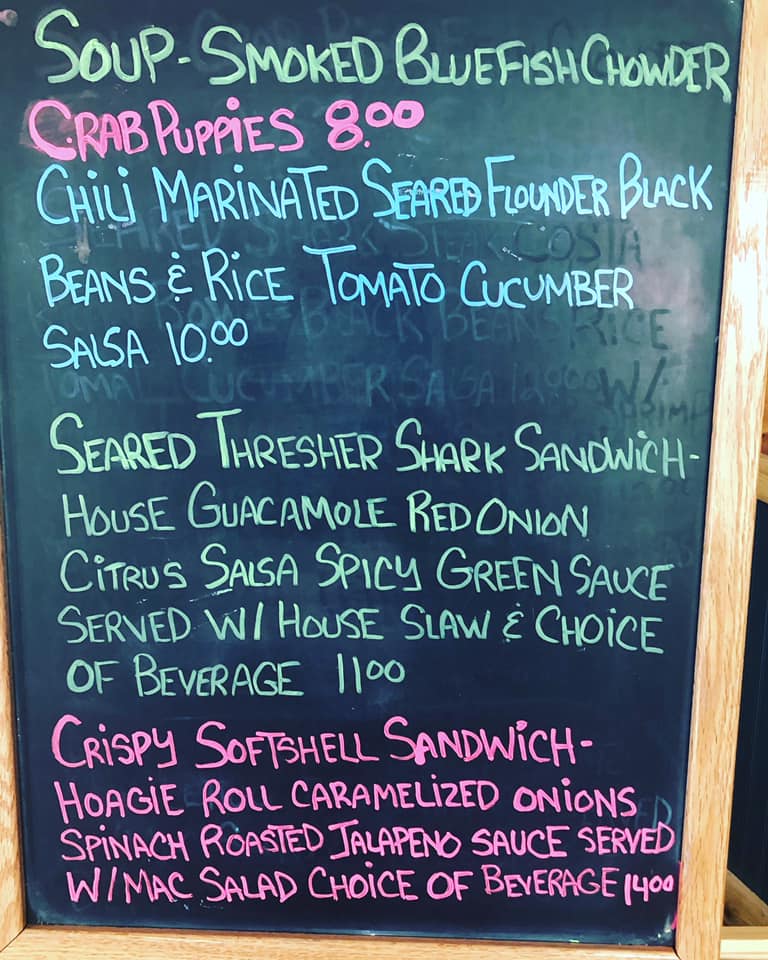 SOUP - SMOKED BLUEFISH CHOWDER
CRAB PUPPIES 8.00
CHILI MARINATED SEARED FLOUNDER BLACK
BEANS & RICE TOMATO CUCUMBER
SALSA 10.00
SEARED THRESHER SHARK SANDWICH-
HOUSE GUACAMOLE RED ONION
CITRUS SALSA SPICY GREEN SAUCE
SERVED W/ HOUSE SLAW & CHOICE
OF BEVERAGE 11.00
CRISPY SOFTSHELL SANDWICH-
HOAGIE ROLL CARAMELIZED ONIONS
SPINACH ROASTED JALAPENO SAUCE SERVED
W/ MAC SALAD CHOICE OF BEVERAGE 14.00